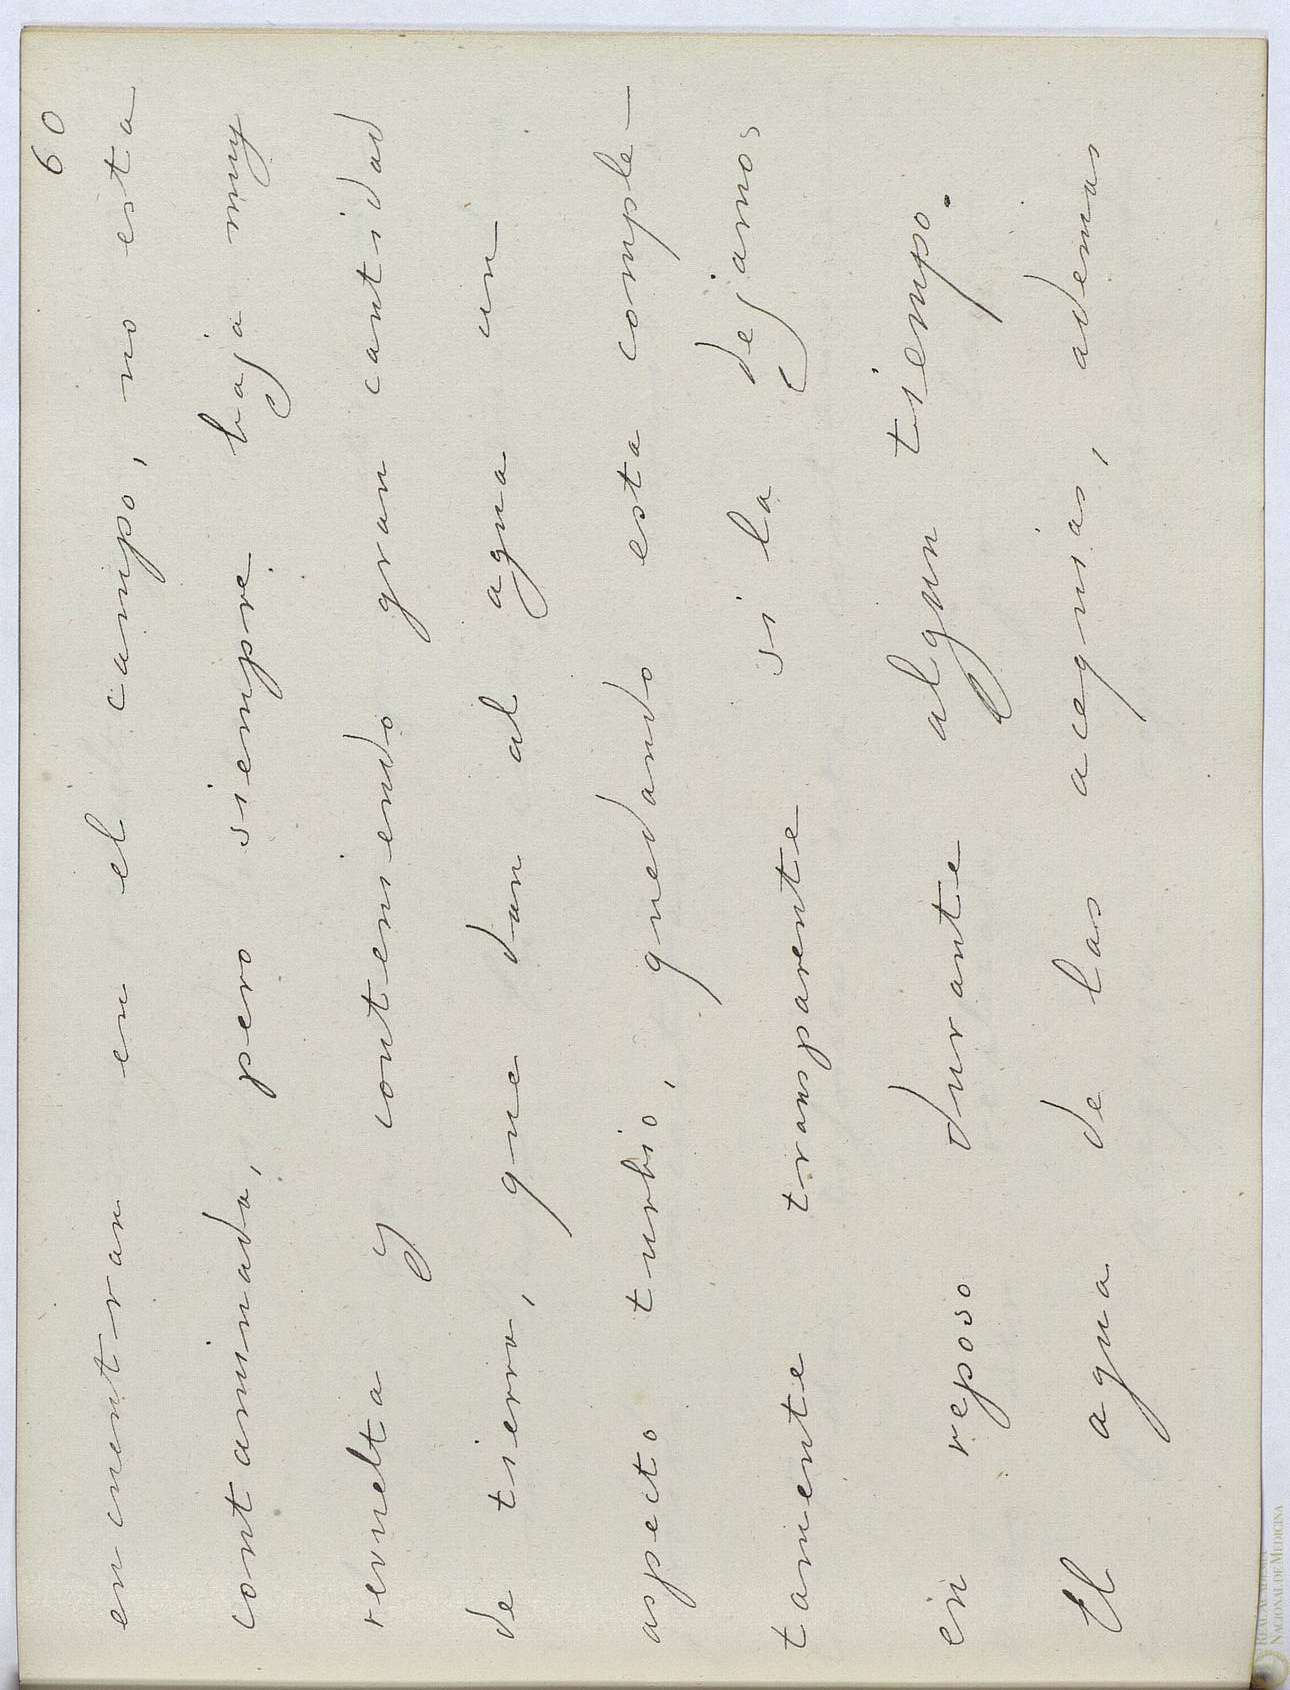 60
encuentran en el campo, no esta
contaminada, pero siempre baja muy
revuelta y conteniendo gran cantidad
de tierra, que dan al agua un
aspecto turbio, quedando esta comple-
tamente transparente si la dejamos
en reposo durante algun tiempo.
El agua de las acequias, ademas
REAL ACADEMIA
NACIONAL DE MEDICINA